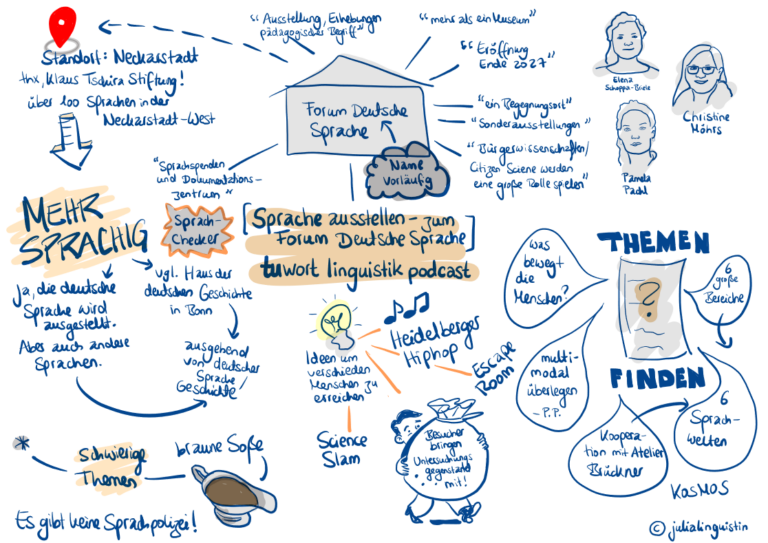 "Ausstellung, Erhebungen
pädagogischer Begriff"
"mehr als ein Museum"
"Eröffnung
Ende 2027"
"ein Begegnungsort"
"Sonderausstellungen"
"Bürgerwissenschaften/
Citizen Sciene werden
eine große Rolle spielen"
Elena
Schoppa-Briele
Christine
Möhrs
Pamela
Pachl
Standort: Neckarstadt
thx, Klaus Tschira Stiftung!
über 100 Sprachen in der
Neckarstadt-West
Forum Deutsche
Sprache
Name
Vorläufig
"Sprachspenden
und Dokumentations-
zentrum"
MEHR
SPRACHIG
Sprach-
Checker
[Sprache ausstellen - zum
Forum Deutsche Sprache]
tuwort linguistik podcast
Ja, die deutsche
Sprache wird
ausgestellt.
Aber auch andere
Sprachen.
vgl. Haus der
deutschen Geschichte
in Bonn
ausgehend
von deutscher
Sprache/
Geschichte
Ideen um
verschieden
Menschen zu
erreichen
Heidelberger
Hiphop
Escape
Room
Science
Slam
Besucher
bringen
Untersuchungs
gegenstand
mit!
THEMEN
?
FINDEN
was
bewegt
die
Menschen?
6
große
Bereiche
multi-
modal
überlegen
- P.P.
Koopera-
tion mit Atelier
Brückner
6
Sprach-
welten
KOSMOS
*
Schwierige
Themen
braune Soße
Es gibt keine Sprachpolizei!
© julialinguistin